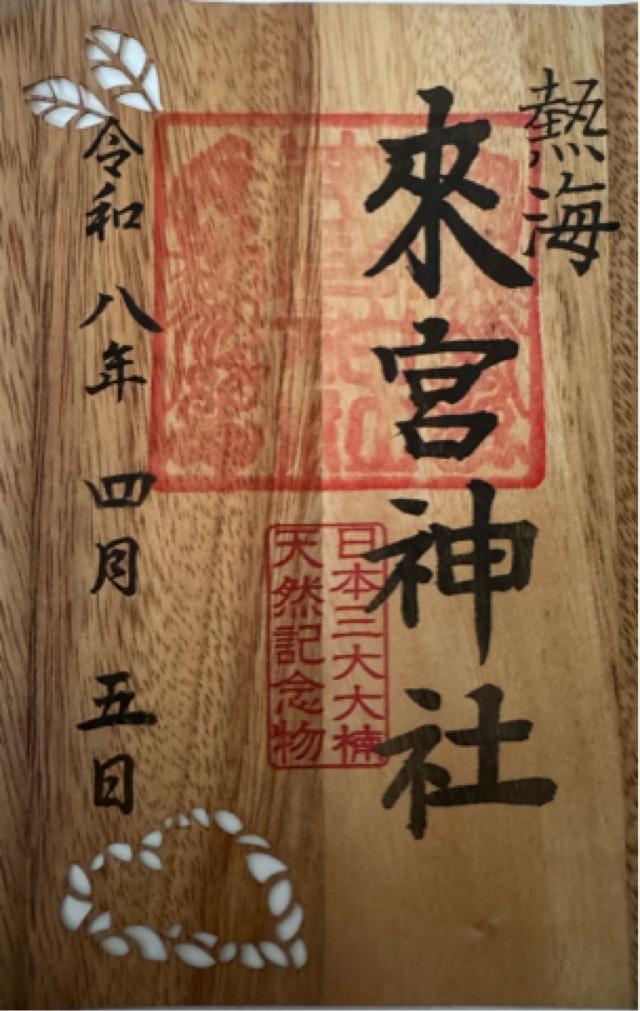 熱海
來宮神社
日本三大大楠
天然記念物
令和八年四月五日